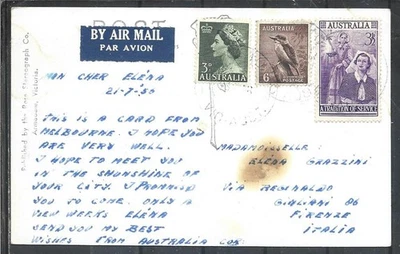 POST
BY AIR MAIL
PAR AVION
3D
AUSTRALIA
AUSTRALIA
6D
POSTAGE
AUSTRALIA
3½D
A TRADITION OF SERVICE
Published by the Rose Stereograph Co.
Armadale, Victoria.
MON CHER ELÉNA
THIS IS A CARD FROM
MELBOURNE. I HOPE YOU
ARE VERY WELL.
I HOPE TO MEET YOU
IN THE SHUNSHINE OF
YOUR CITY. I PROMISSD
YOU TO COME. ONLY A
VIEW WEEKS ELÉNA
SEND YOU MY BEST
WISHES FROM AUSTRALIA
MADAMOISELLE:
ELÉNA GRAZZINI
VIA REGINALDO
GIULIANI 86
FIRENZE
ITALIA